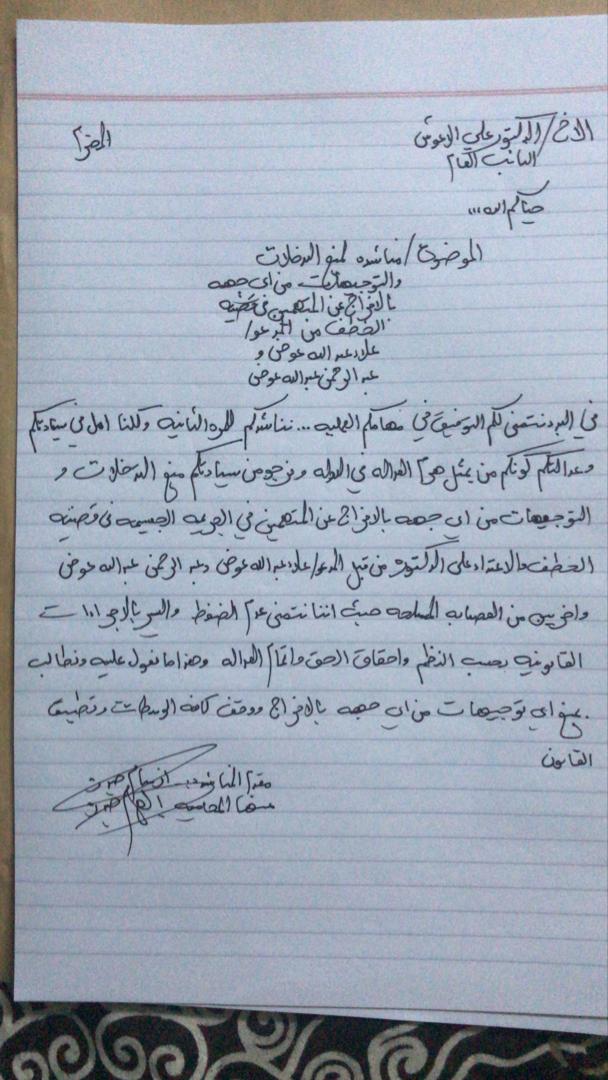 الاخ/ الدكتور علي الاعوش المحترم
النائب العام
حياكم الله...
الموضوع/ مناشده لمنع التدخلات
والتوجيهات من اي جهه
بالافراج عن المتهمين في قضيه
الخطف من المدعو/
علاء عبد الله عوض و
عبد الرحمن عبد الله عوض
في البدء نتمنى لكم التوفيق في مهامكم العمليه ... نناشدكم للمره الثانيه وكلنا امل في سيادتكم
وعدالتكم كونكم من يمثل هرم العداله في الدوله ونرجو من سيادتكم منع التدخلات و
التوجيهات من اي جهه بالافراج عن المتهمين في الجريمه الجسيمه في قضيه
الخطف والاعتداء على الدكتوره من قبل المدعو/ علاء عبد الله عوض وعبد الرحمن عبد الله عوض
واخريين من العصابه المسلحه حيث اننا نتمنى عدم الضغوط والسير بالاجراءات
القانونيه بحسب النظم واحقاق الحق واتمام العداله وهذا ما نعول عليه ونطالب
بمنع اي توجيهات من اي جهه بالافراج ووقف كافه الوساطات وتطبيق
القانون
مقدم المناشده
عنها المحاميه